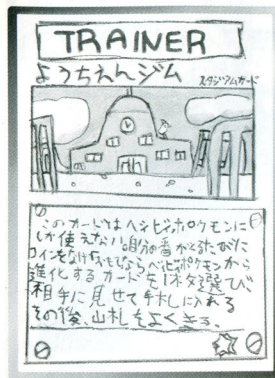 TRAINER
ようちえんジム
スタジアムカード
このカードはベイビィポケモンに
しか使えない。自分の番がくるたびに
コインをなげ「おもて」ならベイビィポケモンから
進化するカードを1枚選び
相手に見せて手札に入れる
その後、山札をよくきる。